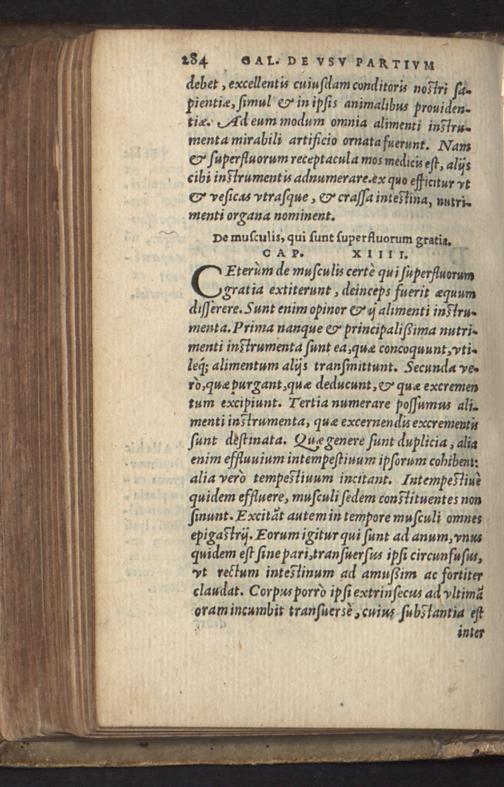 284 GAL. DE VSV PARTIVM
debet, excellentis cuiusdam conditoris nostri sa-
pientiæ, simul & in ipsis animalibus prouiden-
tiæ. Ad eum modum omnia alimenti instru-
menta mirabili artificio ornata fuerunt. Nam
& superfluorum receptacula mos medicis est, alijs
cibi instrumentis adnumerare. ex quo efficitur vt
& vesicas vtrasque, & crassa intestina, nutri-
menti organa nominent.
De musculis, qui sunt superfluorum gratia.
CAP. XIIII.
CEterùm de musculis certè qui superfluorum
gratia extiterunt, deinceps fuerit æquum
disserere. Sunt enim opinor & ij alimenti instru-
menta. Prima nanque & principalißima nutri-
menti instrumenta sunt ea, quæ concoquunt, vti-
leq; alimentum alijs transmittunt. Secunda ve-
rò, quæ purgant, quæ deducunt, & quæ excremen
tum excipiunt. Tertia numerare possumus ali-
menti instrumenta, quæ excernendis excrementis
sunt destinata. Quæ genere sunt duplicia, alia
enim effluuium intempestiuum ipsorum cohibent:
alia verò tempestiuum incitant. Intempestiuè
quidem effluere, musculi sedem constituentes non
sinunt. Excitãt autem in tempore musculi omnes
epigastrij. Eorum igitur qui sunt ad anum, vnus
quidem est sine pari, transuersus ipsi circunfusus,
vt rectum intestinum ad amußim ac fortiter
claudat. Corpus porrò ipsi extrinsecus ad vltimã
oram incumbit transuersè, cuius substantia est
inter